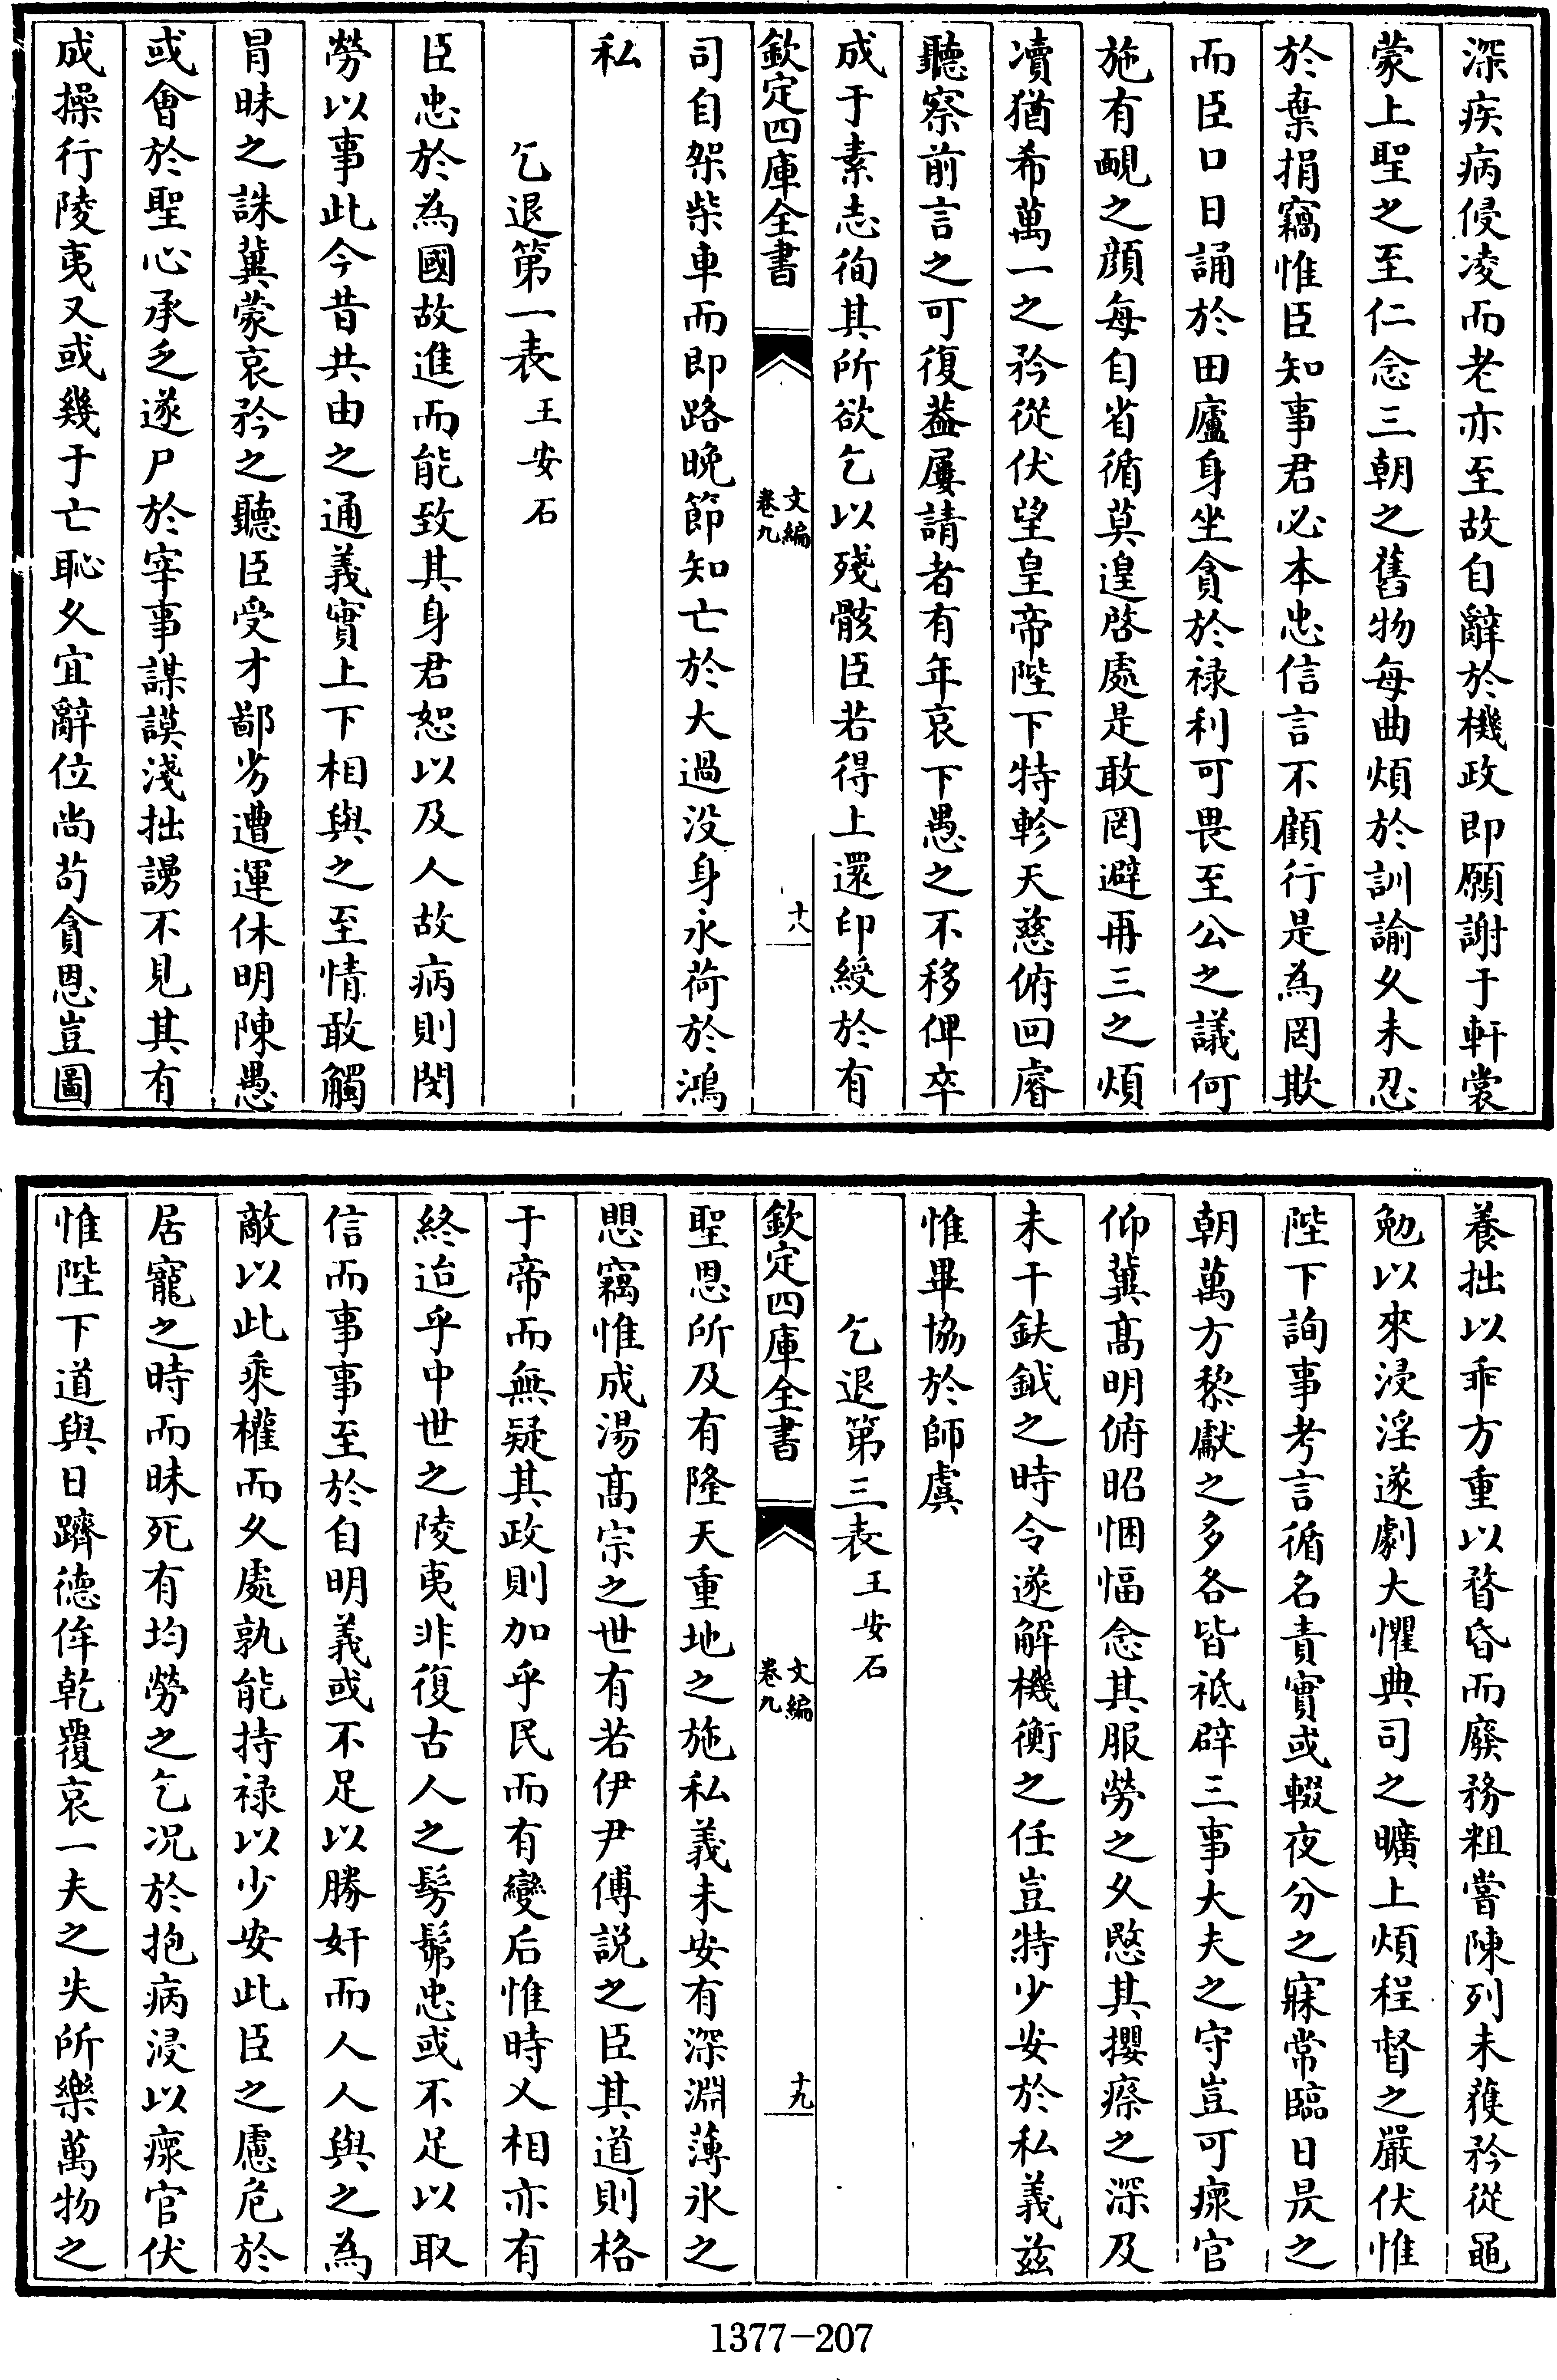 深疾病侵凌而老亦至故自辭於機政即願謝于軒裳
蒙上聖之至仁念三朝之舊物每曲煩於訓諭久未忍
於棄捐竊惟臣知事君必本忠信言不顧行是為罔欺
而臣口日誦於田廬身坐貪於祿利可畏至公之議何
施有靦之顔每自省循莫遑啓處是敢罔避再三之煩
凟猶希萬一之矜從伏望皇帝陛下特軫天慈俯回睿
聽察前言之可復葢屢請者有年哀下愚之不移俾卒
成于素志徇其所欲乞以殘骸臣若得上還印綬於有
欽定四庫全書
文編
卷九
十八
司自架柴車而即路晚節知亡於大過没身永荷於鴻
私
乞退第一表 王安石
臣忠於為國故進而能致其身君恕以及人故病則閔
勞以事此今昔共由之通義實上下相與之至情敢觸
冒昧之誅冀蒙哀矜之聽臣受才鄙劣遭運休明陳愚
或會於聖心承乏遂尸於宰事謀謨淺拙謗不見其有
成操行陵夷又或幾于亡恥久宜辭位尚茍貪恩豈圖
養拙以乖方重以瞀昏而廢務粗嘗陳列未獲矜從黽
勉以來浸淫遂劇大懼典司之曠上煩程督之嚴伏惟
陛下詢事考言循名責實或輟夜分之寐常臨日昃之
朝萬方黎獻之多各皆祇辟三事大夫之守豈可瘝官
仰冀髙明俯昭悃愊念其服勞之久愍其攖瘵之深及
未干鈇鉞之時令遂解機衡之任豈特少安於私義兹
惟畢協於師虞
乞退第三表 王安石
欽定四庫全書
文編
卷九
十九
聖恩所及有隆天重地之施私義未安有深淵薄氷之
愳竊惟成湯髙宗之世有若伊尹傅說之臣其道則格
于帝而無疑其政則加乎民而有變后惟時乂相亦有
終迨乎中世之陵夷非復古人之髣髴忠或不足以取
信而事事至於自明義或不足以勝奸而人人與之為
敵以此乘權而久處孰能持祿以少安此臣之慮危於
居寵之時而昧死有均勞之乞况於抱病浸以瘝官伏
惟陛下道與日躋德侔乾覆哀一夫之失所樂萬物之
1377-207